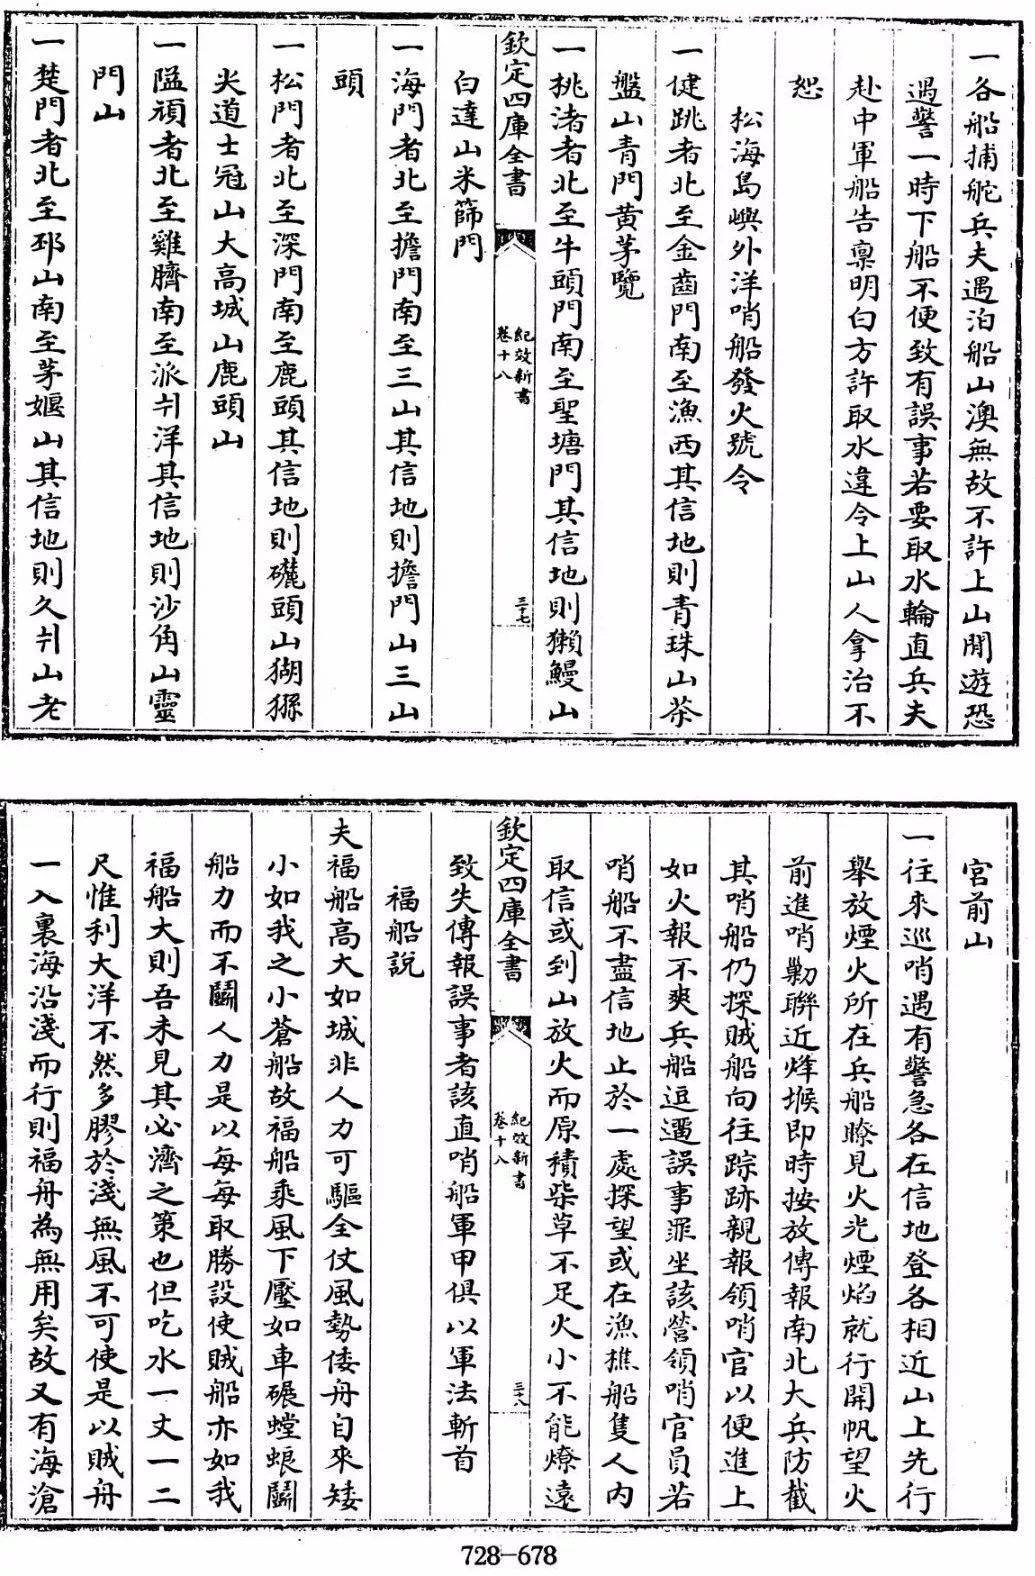 一各船捕舵兵夫遇泊船山澳無故不許上山閒遊恐
遇警一時下船不便致有誤事若要取水輪直兵夫
赴中軍船告稟明白方許取水違令上山人拿治不
恕
松海島嶼外洋哨船發火號令
一健跳者北至金齒門南至漁西其信地則青珠山茶
盤山青門黄茅覽
一挑渚者北至牛頭門南至聖塘門其信地則獺鰻山
欽定四庫全書
紀效新書
卷十八
三十七
白達山米篩門
一海門者北至擔門南至三山其信地則擔門山三山
頭
一松門者北至深門南至鹿頭其信地則礲頭山猢猻
尖道士冠山大高城山鹿頭山
一隘頑者北至雞臍南至派汫洋其信地則沙角山靈
門山
一楚門者北至邳山南至茅堰山其信地則久山老
宫前山
一往來巡哨遇有警急各在信地登各相近山上先行
舉放煙火所在兵船瞭見火光煙焰就行開帆望火
前進哨勦聯近烽堠即時按放傳報南北大兵防截
其哨船仍探賊船向往踪跡親報領哨官以便進上
如火報不爽兵船逗遛誤事罪坐該營領哨官員若
哨船不盡信地止於一處探望或在漁樵船隻人内
取信或到山放火而原積柴草不足火小不能燎遠
欽定四庫全書
紀效新書
卷十八
三十八
致失傳報誤事者該直哨船軍甲俱以軍法斬首
福船説
夫福船高大如城非人力可驅全仗風勢倭舟自來矮
小如我之小蒼船故福船乘風下壓如車碾螳螂鬬
船力而不鬬人力是以每每取勝設使賊船亦如我
福船大則吾未見其必濟之策也但吃水一丈一二
尺惟利大洋不然多膠於淺無風不可使是以賊舟
一入裏海沿淺而行則福舟為無用矣故又有海滄
728-678